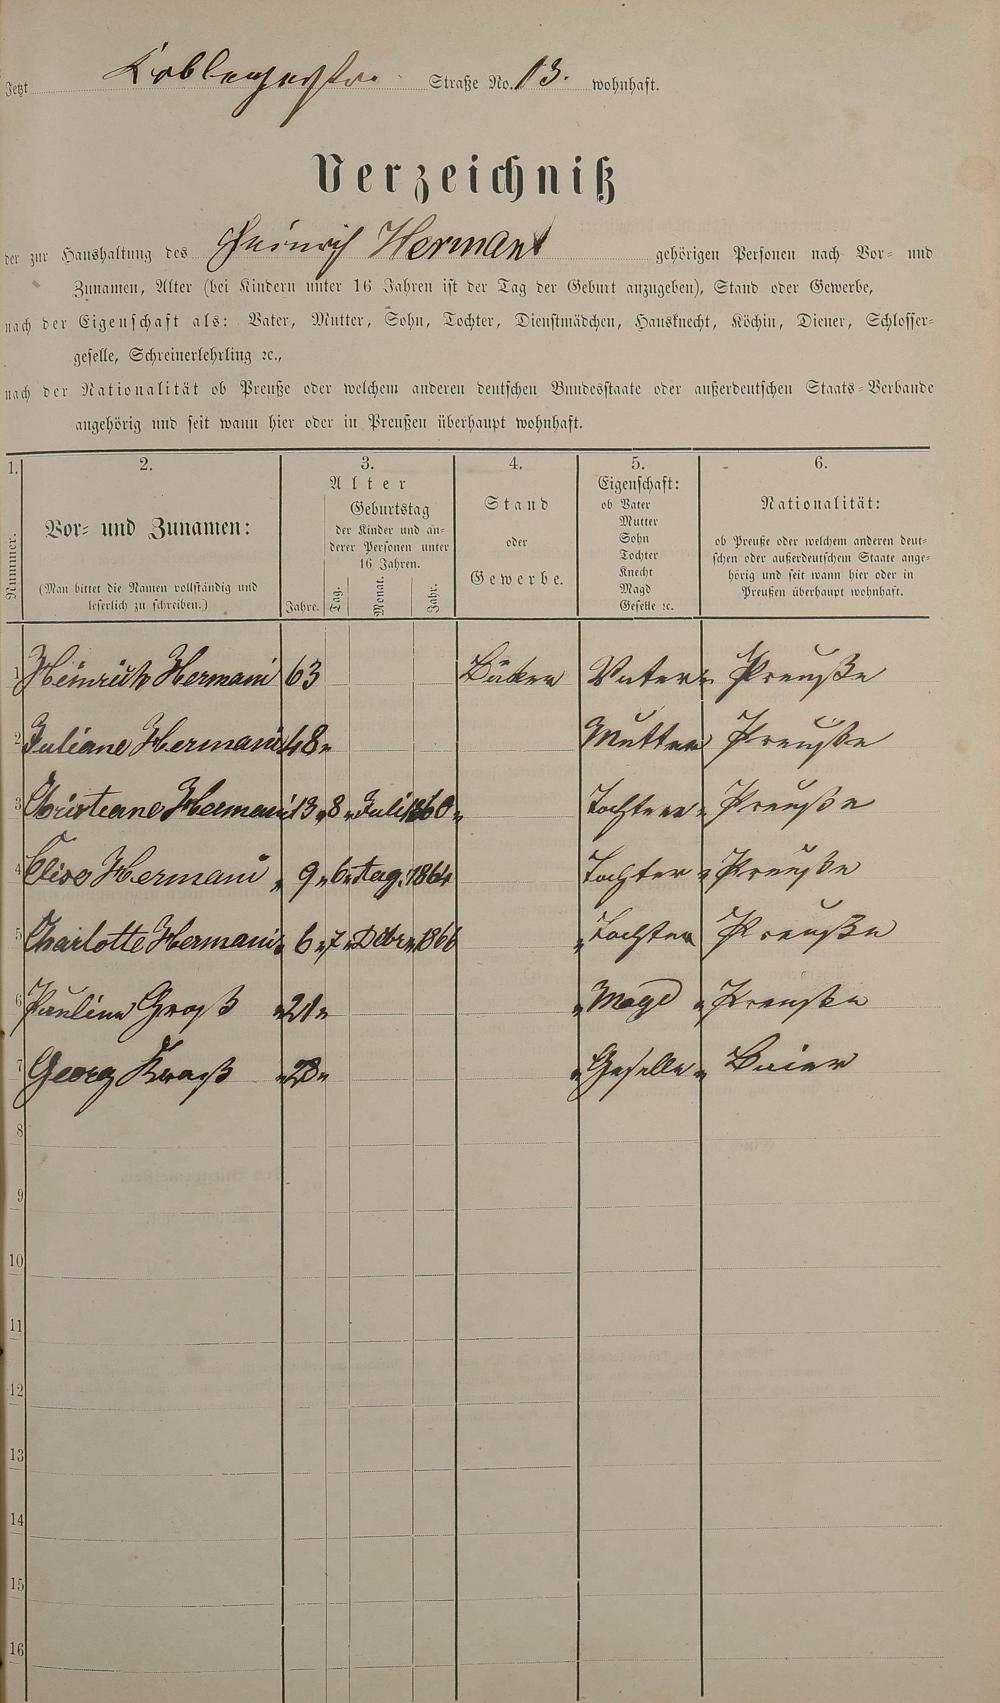 Jetzt Koblenzerstr. Straße No. 13. wohnhaft.
Verzeichniß
der zur Haushaltung des Heinrich Hermani gehörigen Personen nach Vor- und
Zunamen, Alter (bei Kindern unter 16 Jahren ist der Tag der Geburt anzugeben), Stand oder Gewerbe,
nach der Eigenschaft als: Vater, Mutter, Sohn, Tochter, Dienstmädchen, Hausknecht, Köchin, Diener, Schlosser-
geselle, Schreinerlehrling ꝛc.,
nach der Nationalität ob Preuße oder welchem anderen deutschen Bundesstaate oder außerdeutschen Staats-Verbande
angehörig und seit wann hier oder in Preußen überhaupt wohnhaft.
1. 2. 3. 4. 5. 6.
Nummer.
Vor- und Zunamen:
(Man bittet die Namen vollständig und
leserlich zu schreiben.)
Alter
Jahre.
Geburtstag
der Kinder und an-
derer Personen unter
16 Jahren.
Tag. Monat. Jahr.
Stand
oder
Gewerbe.
Eigenschaft:
ob Vater
Mutter
Sohn
Tochter
Knecht
Magd
Geselle ꝛc.
Nationalität:
ob Preuße oder welchem anderen deut-
schen oder außerdeutschem Staate ange-
hörig und seit wann hier oder in
Preußen überhaupt wohnhaft.
1 Heinrich Hermani 63 Bäcker Vater " Preuße
2 Juliane Hermani 48 " Mutter Preuße
3 Christiane Hermani 13 " 8 " Juli 1860 " Tochter " Preuße
4 Elise Hermani " 9 " 6 " 1864 Tochter " Preuße
5 Charlotte Hermani " 6 " 7 " Dcbr " 1866 " Tochter Preuße
6 Pauline Groß " 21 " " Magd " Preuße
7 Georg Kraß " 23 " " Geselle " Baier
8
9
10
11
12
13
14
15
16